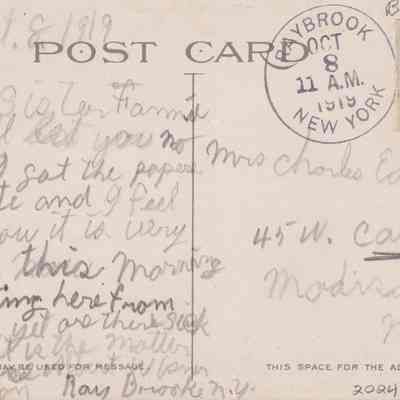 8 1919
POST CARD
RAYBROOK
OCT
8
11 A.M.
1919
NEW YORK
Sister Fannie
let you no
got the papers
te and I feel
ow it is very
this morning
ing here from
yet as there sick
is the matter
MAY BE USED FOR MESSAGE.
Ray Brook N.Y.
Mrs Charles
45 W. Ca
Madiso
THIS SPACE FOR THE AD
2024